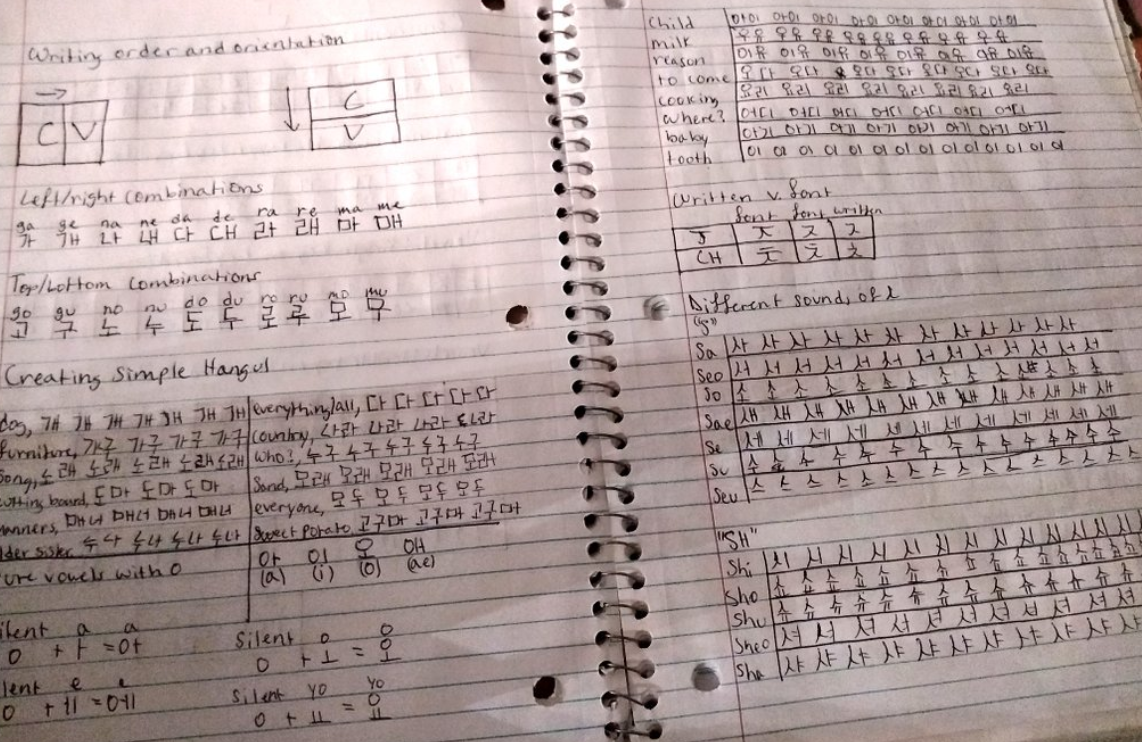 Writing order and orientation
C V
C
V
Left/right combinations
ga ge na ne da de ra re ma me
가 개 나 내 다 대 라 래 마 매
Top/bottom combinations
go gu no nu do du ro ru mo mu
고 구 노 누 도 두 로 루 모 무
Creating Simple Hangul
dog, 개 개 개 개 개 개 개
furniture, 가구 가구 가구 가구
Song, 노래 노래 노래 노래 노래
cutting board, 도마 도마 도마
manners, 매너 매너 매너 매너
lder sister 누나 누나 누나 누나
everything/all, 다 다 다 다 다
country, 나라 나라 나라 나라
who?, 누구 누구 누구 누구
Sand, 모래 모래 모래 모래 모래
everyone, 모두 모두 모두 모두
Sweet potato, 고구마 고구마 고구마
ure vowels with O
아 이 오 애
(a) (i) (o) (ae)
ilent a a
ㅇ + ㅏ = 아
Silent o o
ㅇ + ㅗ = 오
lent e e
ㅇ + ㅔ = 에
Silent yo yo
ㅇ + ㅛ = 요
Child 아이 아이 아이 아이 아이 아이 아이 아이
milk 우유 우유 우유 우유 우유 우유 우유
reason 이유 이유 이유 이유 이유 이유 이유 이유
to come 오다 오다 오다 오다 오다 오다 오다
cooking 요리 요리 요리 요리 요리 요리 요리
where? 어디 어디 어디 어디 어디 어디
baby 아기 아기 아기 아기 아기 아기 아기
tooth 이 이 이 이 이 이 이 이 이 이 이 이 이
Written v. font
font font written
J ㅈ ㅈ ㅈ
CH ㅊ ㅊ ㅊ
Different sounds of
"S"
Sa 사 사 사 사 사 사 사 사 사 사 사
Seo 서 서 서 서 서 서 서 서 서 서 서 서
So 소 소 소 소 소 소 소 소 소 소 소 소
Sae 새 새 새 새 새 새 새 새 새 새 새 새
Se 세 세 세 세 세 세 세 세 세 세 세
Su 수 수 수 수 수 수 수 수 수 수 수 수
Seu 스 스 스 스 스 스 스 스 스 스 스 스 스
"SH"
Shi 시 시 시 시 시 시 시 시 시 시 시 시
Sho 쇼 쇼 쇼 쇼 쇼 쇼 쇼 쇼 쇼 쇼 쇼 쇼 쇼
Shu 슈 슈 슈 슈 슈 슈 슈 슈 슈 슈 슈 슈 슈
Sheo 셔 셔 셔 셔 셔 셔 셔 셔 셔 셔
Sha 샤 샤 샤 샤 샤 샤 샤 샤 샤 샤 샤